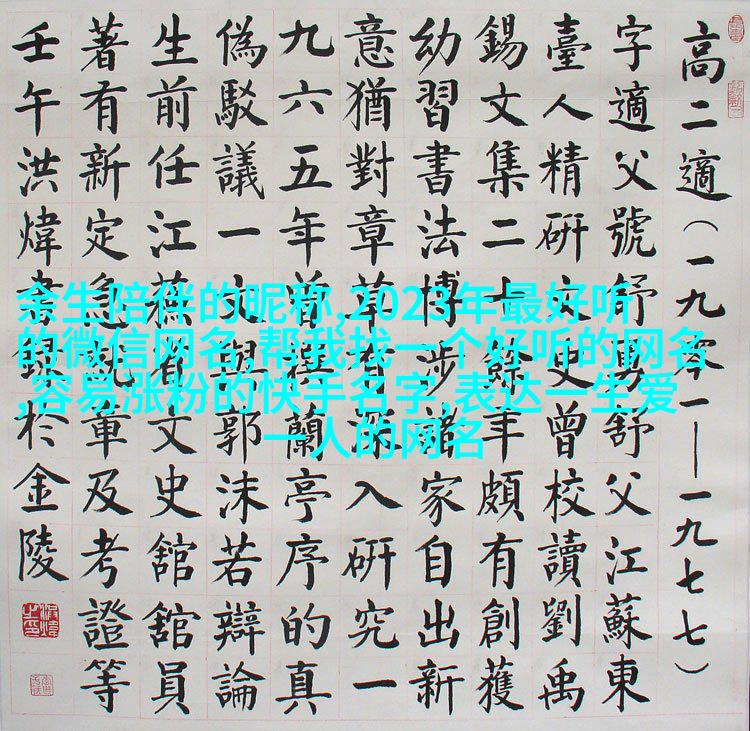 高二適（一九零一——一九七七）
字適父號舒舒父江蘇東
臺人精研文史曾校讀劉禹
錫文集二十餘年頗有創獲
幼習書法博涉諸家自出新
意猶對章草有深入研究一
九六五年曾撰蘭亭序的真
偽駁議一文與郭沫若辯論
生前任江蘇省文史舘舘員
著有新定急就章及考證等
壬午洪煒書錄扵金陵
余生陪伴的昵称,2023年最好听
的微信网名,帮我找一个好听的网名
,容易涨粉的快手名字,表达一生爱
一人的网名